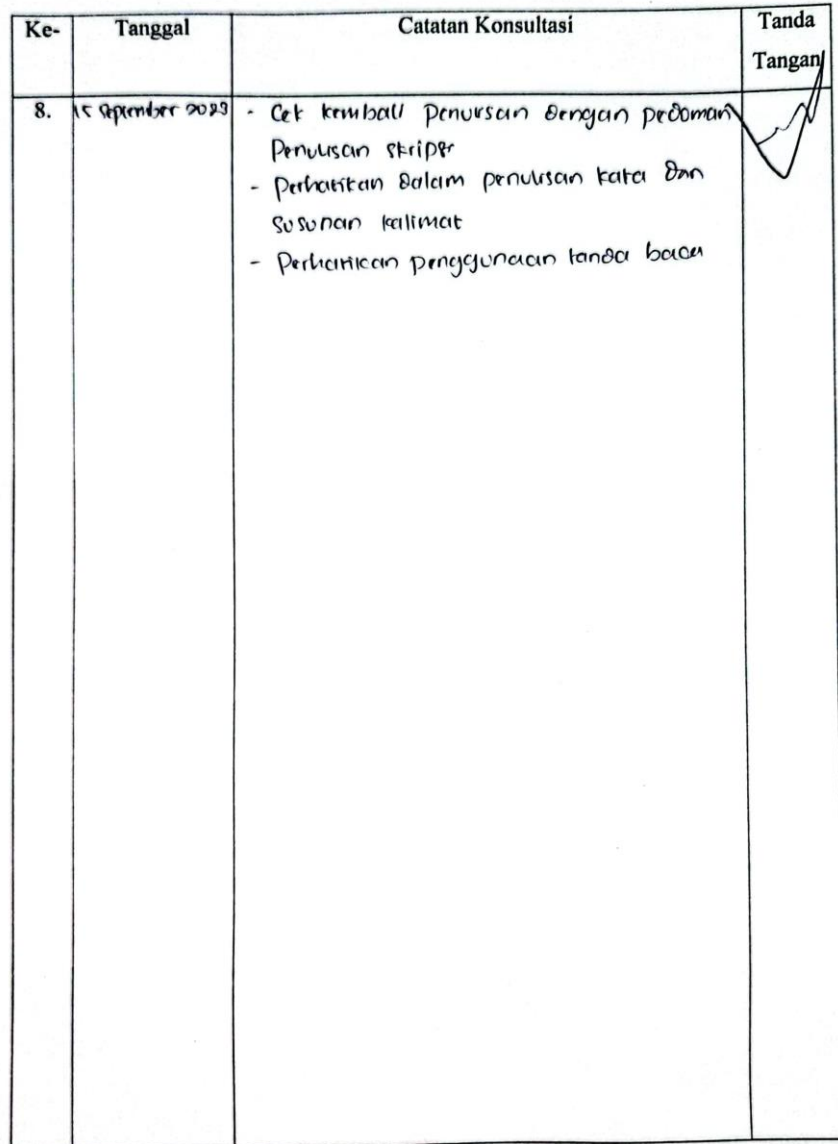 Ke- Tanggal Catatan Konsultasi Tanda
Tangan
8. 15 September 2023 - Cek kembali penulisan dengan pedoman
Penulisan skripsi
- Perhatikan dalam penulisan kata dan
susunan kalimat
- Perhatikan penggunaan tanda baca